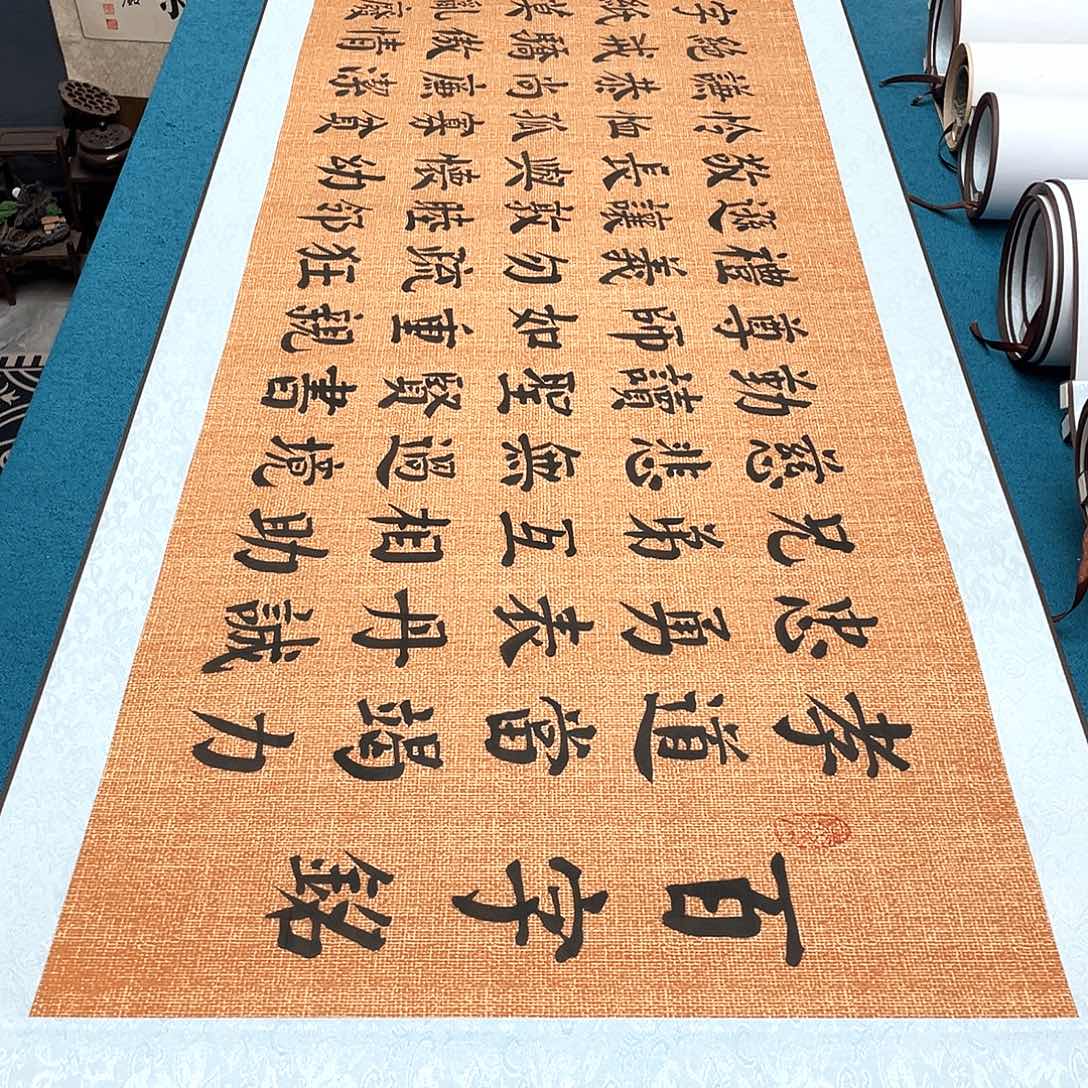 百字銘
孝道當竭力
忠勇表丹誠
兄弟互相助
慈悲無過境
勤讀聖賢書
尊師如重親
禮義勿疏狂
遜讓敦睦邻
敬長與懷幼
怜恤孤寡貧
謙恭尚廉潔
絕戒驕傲情
字紙莫亂廢